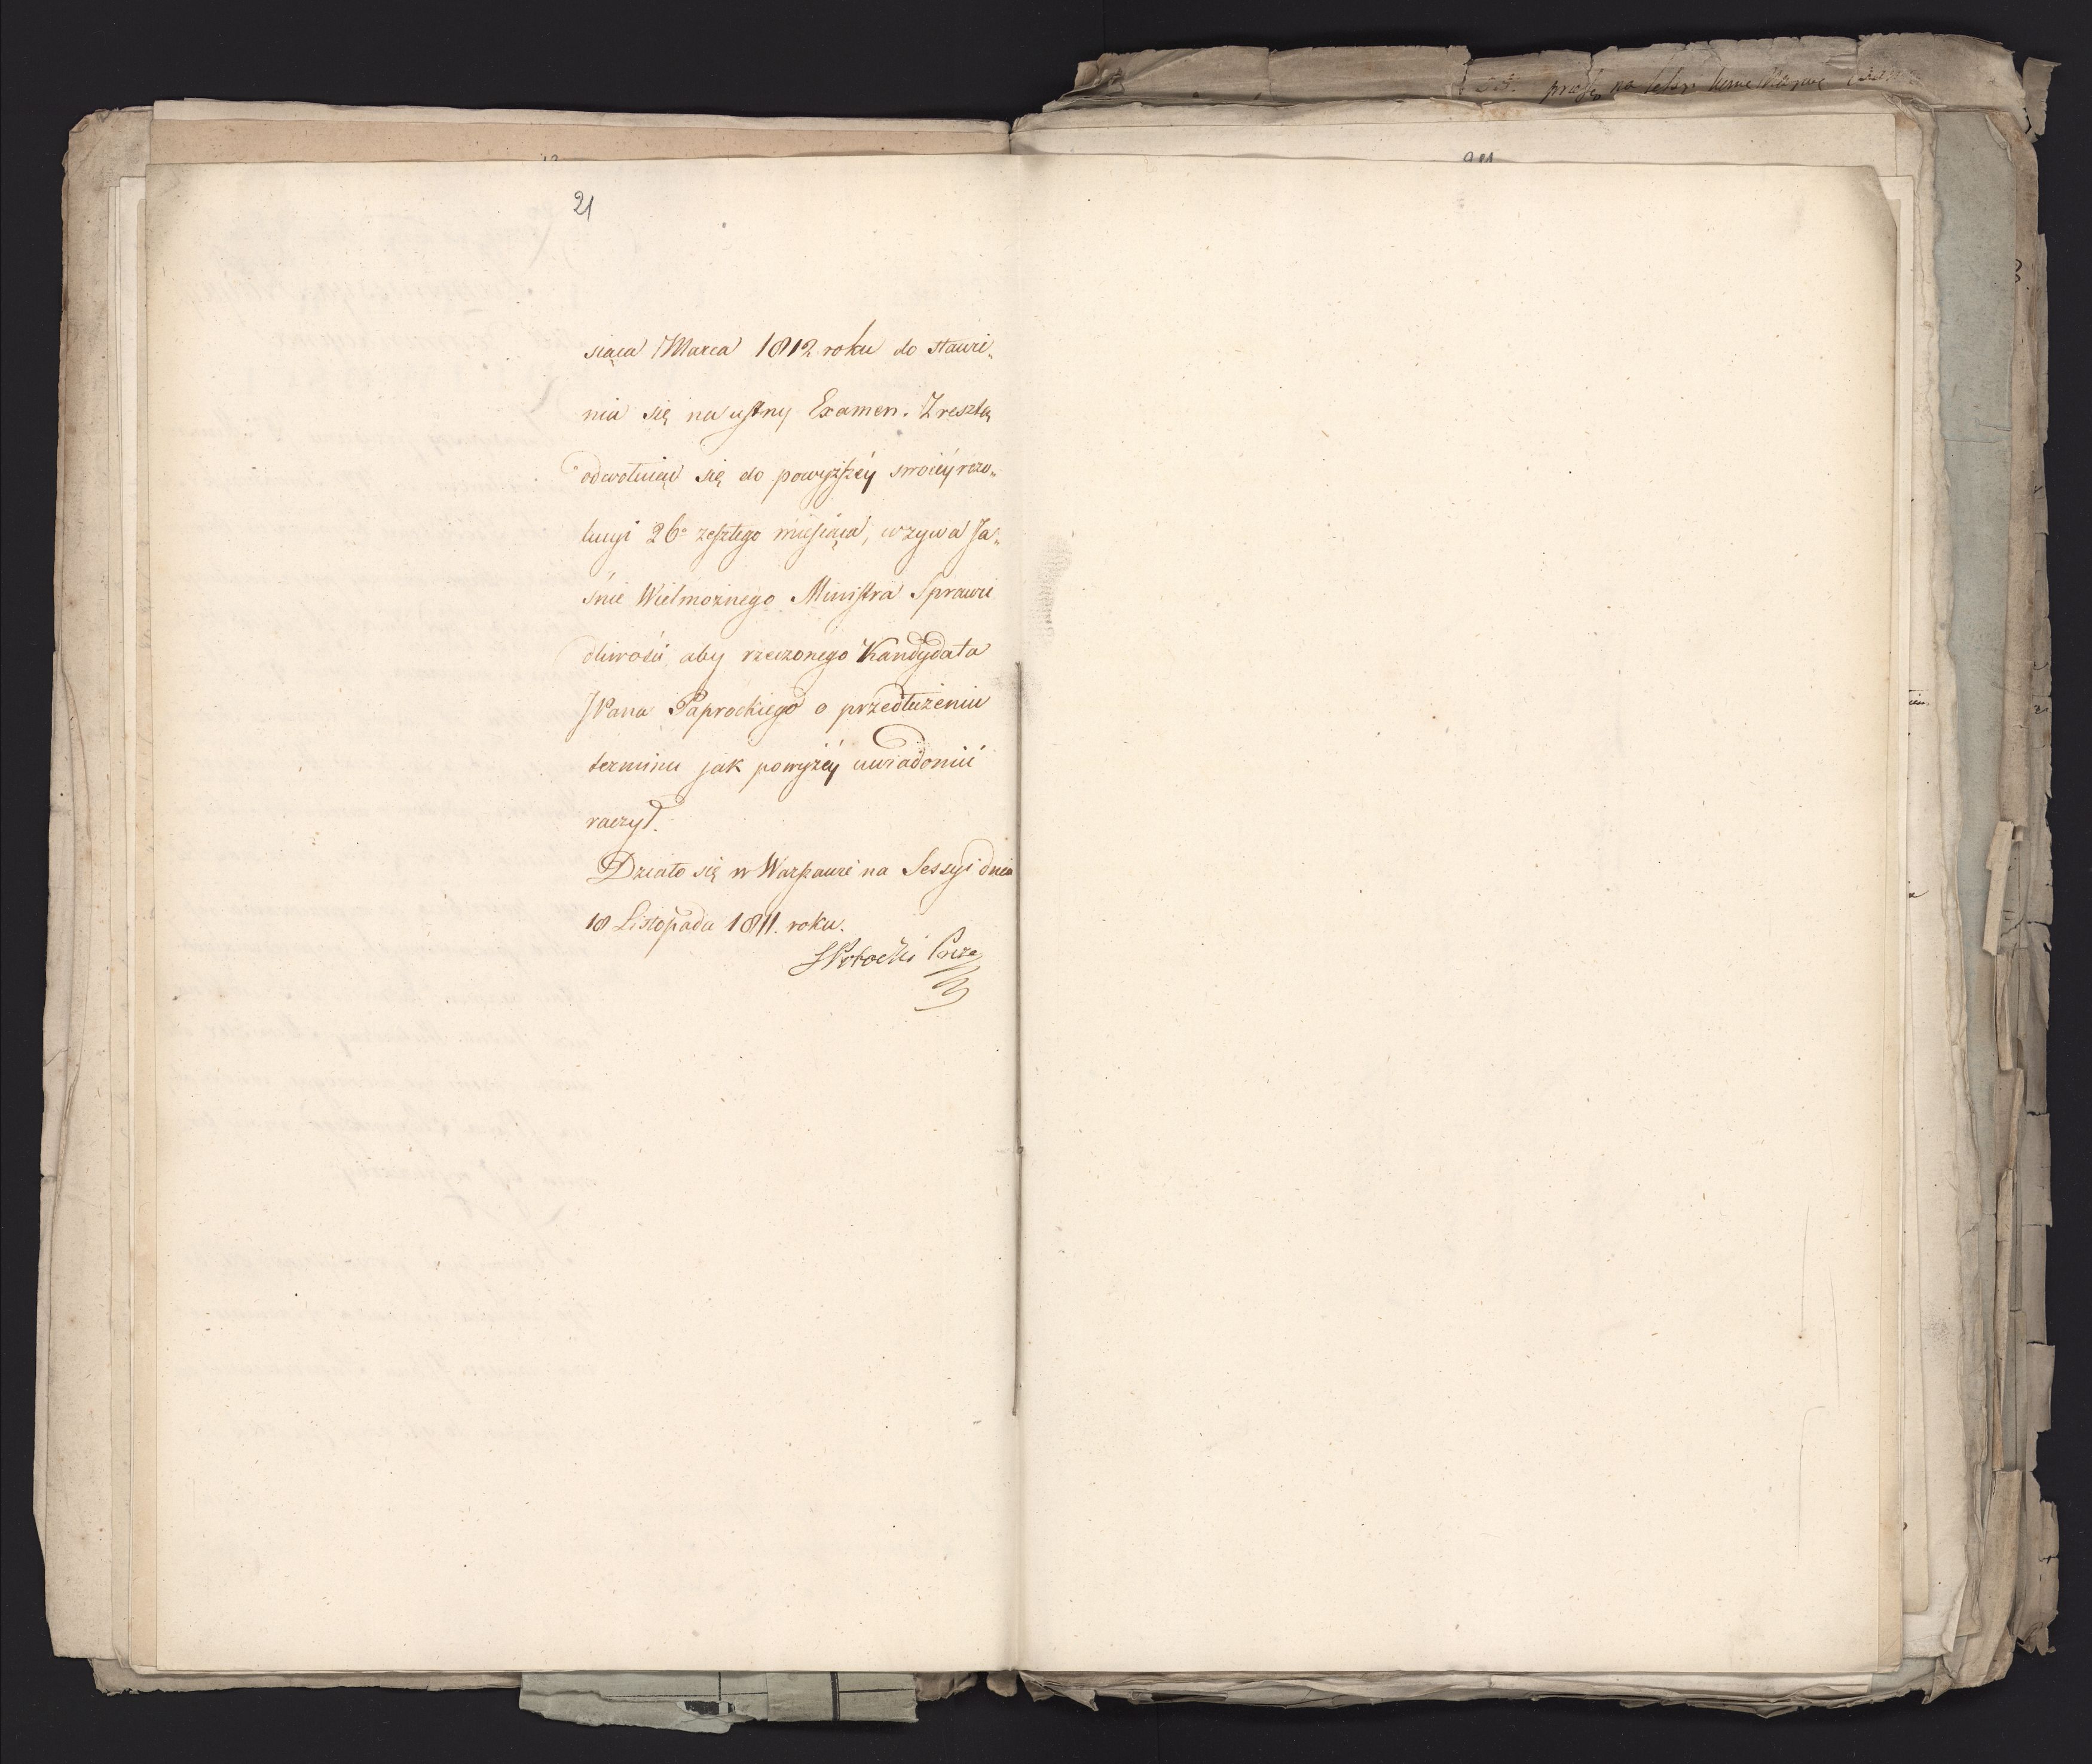 21
siąca Marca 1812 roku do stawie„
nia się na ustny Examen. Zresztą
odwołuiąc się do powyższéy swoiéy rezo„
lucyi 26º zeszłego miesiąca, wzywa Ja„
śnie Wielmożnego Ministra Sprawie
dliwości aby rzeczonego Kandydata
JPana Paprockiego o przedłużeniu
terminu jak powyżéy uwiadomić
raczył.
Działo się w Warszawie na Sessyi dnia
18 Listopada 1811. roku.
Potocki